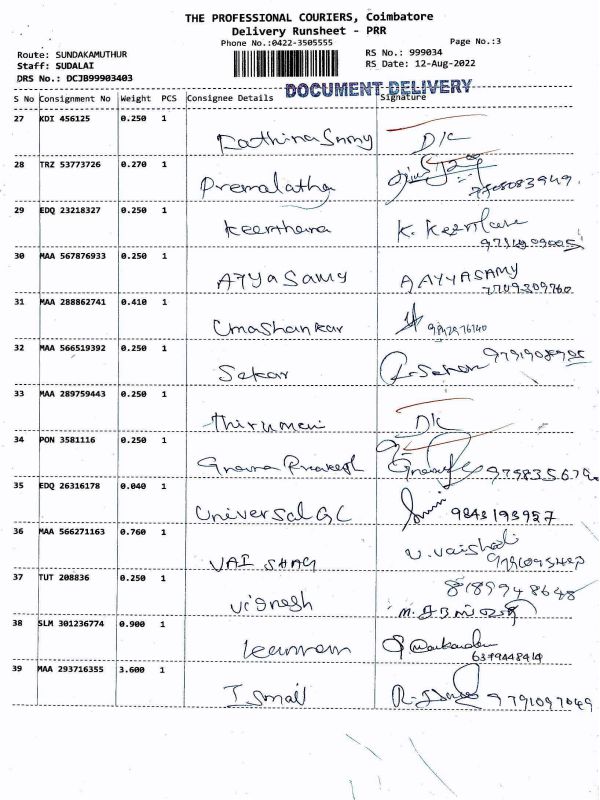 THE PROFESSIONAL COURIERS, Coimbatore
Delivery Runsheet - PRR
Phone No.:0422-3505555
Page No.:3
Route: SUNDAKAMUTHUR
RS No.: 999034
Staff: SUDALAI
RS Date: 12-Aug-2022
DRS No.: DCJB99903403
DOCUMENT DELIVERY
S No Consignment No Weight PCS Consignee Details Signature
27 KDI 456125 0.250 1
Rathina Samy D/C
28 TRZ 53773726 0.270 1
Premalatha
29 EDQ 23218327 0.250 1
Keerthana K. Keerthana
30 MAA 567876933 0.250 1
Ayya Samy AAYYASAMY
7709309760
31 MAA 288862741 0.410 1
Umashankar 9842976140
32 MAA 566519392 0.250 1
Sekar
33 MAA 289759443 0.250 1
D/C
34 PON 3581116 0.250 1
Gnana Prakash
35 EDQ 26316178 0.040 1
Universal G C 9843193957
36 MAA 566271163 0.760 1
VAI SHAG
37 TUT 208836 0.250 1
8189948648
Vignesh
38 SLM 301236774 0.900 1
6379448414
39 MAA 293716355 3.600 1
Ismail 9791097049